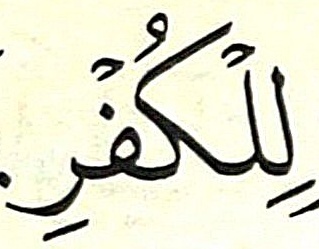 لِلْكُفْرِ